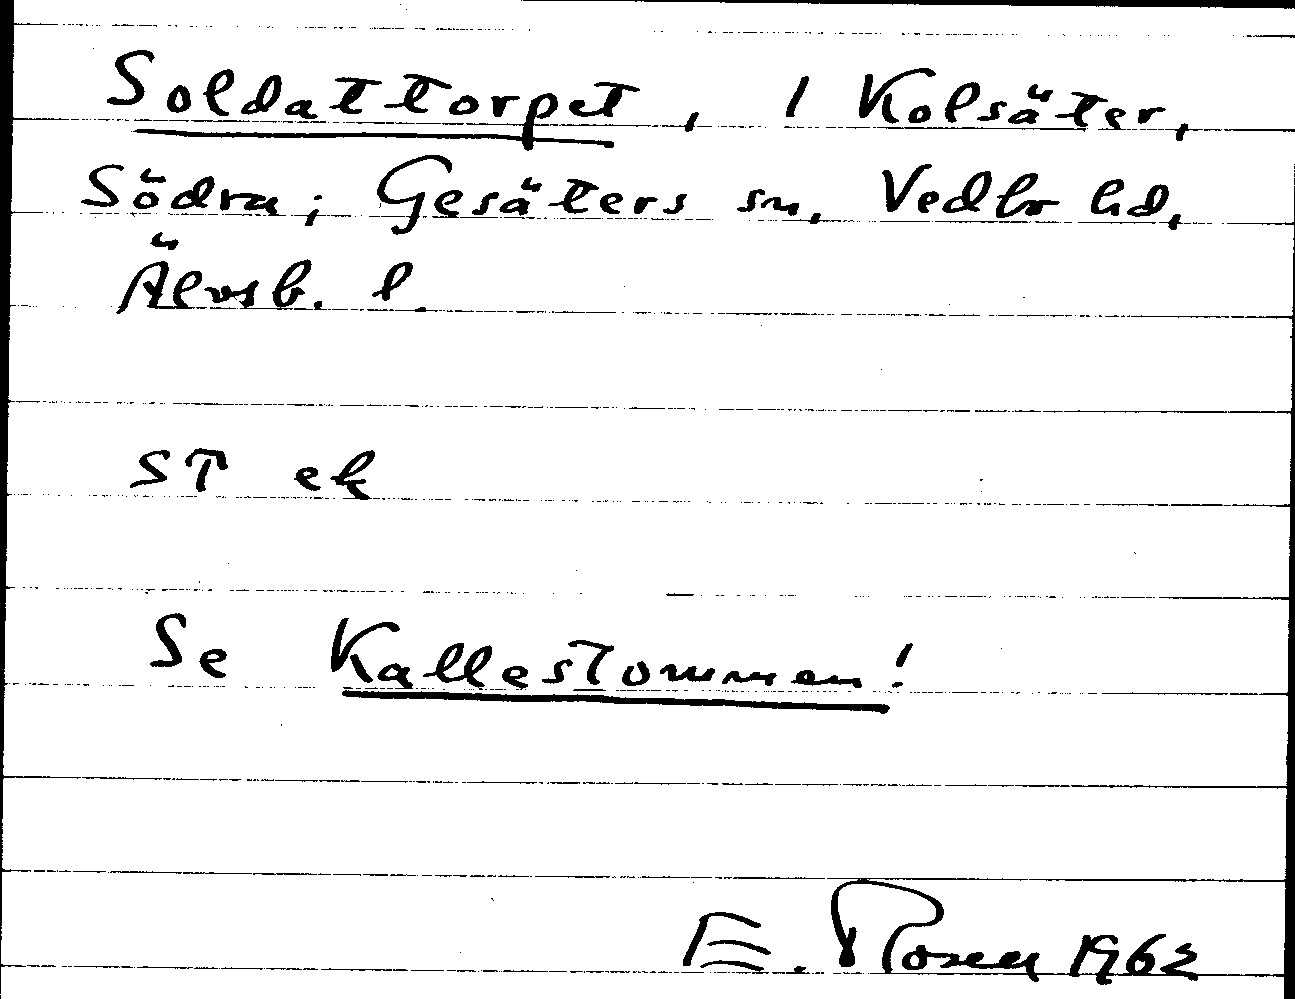 Soldattorpet, 1 Kolsäter,
Södra; Gesäters sn, Vedbo hd,
Älvsb. l.
ST ek
Se Kallestommen!
E. Rosen 1962